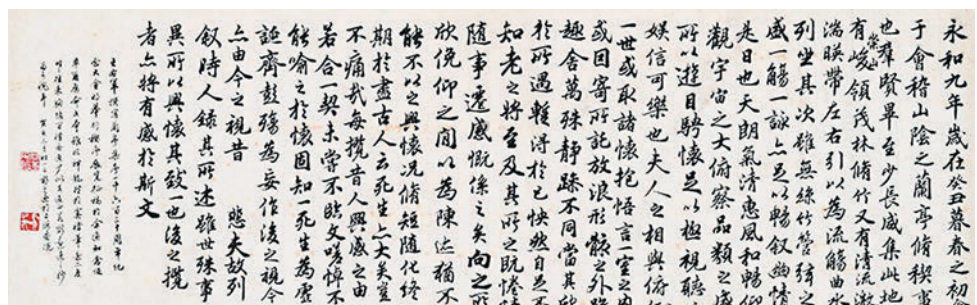 永和九年歲在癸丑暮春之初
于會稽山陰之蘭亭脩稧事
也群賢畢至少長咸集此地
有崇山峻領茂林脩竹又有清流激
湍暎帶左右引以為流觴曲水
列坐其次雖無絲竹管弦之
盛一觴一詠亦足以暢叙幽情
是日也天朗氣清惠風和暢仰
觀宇宙之大俯察品類之盛
所以遊目騁懷足以極視聽之
娛信可樂也夫人之相與俯仰
一世或取諸懷抱悟言一室之內
或因寄所託放浪形骸之外雖
趣舍萬殊靜躁不同當其欣
於所遇輒得於己怏然自足不
知老之將至及其所之既惓情
隨事遷感慨係之矣向之所
欣俛仰之閒以為陳迹猶不
能不以之興懷況脩短隨化終
期於盡古人云死生亦大矣豈
不痛哉每攬昔人興感之由
若合一契未嘗不臨文嗟悼不
能喻之於懷固知一死生為虛
誕齊彭殤為妄作後之視今
亦由今之視昔 悲夫故列
叙時人錄其所述雖世殊事
異所以興懷其致一也後之攬
者亦將有感於斯文